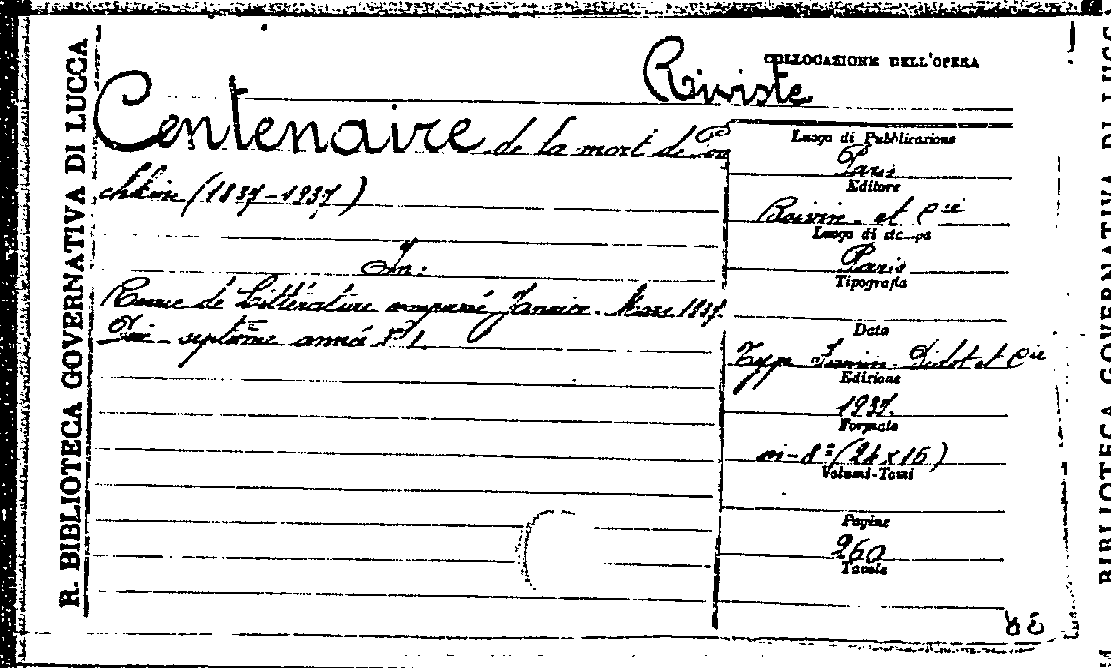 R. BIBLIOTECA GOVERNATIVA DI LUCCA
COLLOCAZIONE DELL'OPERA
Riviste
Centenaire de la mort de Pou
chkine (1837-1937)
In:
Revue de Littérature comparé Janvier. Mars 1937.
Dix-septième année N° 1.
Luogo di Pubblicazione
Paris
Editore
Boivin et Cie
Luogo di stampa
Paris
Tipografia
Data
Typ. Firmin-Didot et Cie
Edizione
1937.
Formato
in-8° (24 x 16)
Volumi-Tomi
Pagine
260
Tavole
BIBLIOTECA GOVERNATIVA DI LUCCA